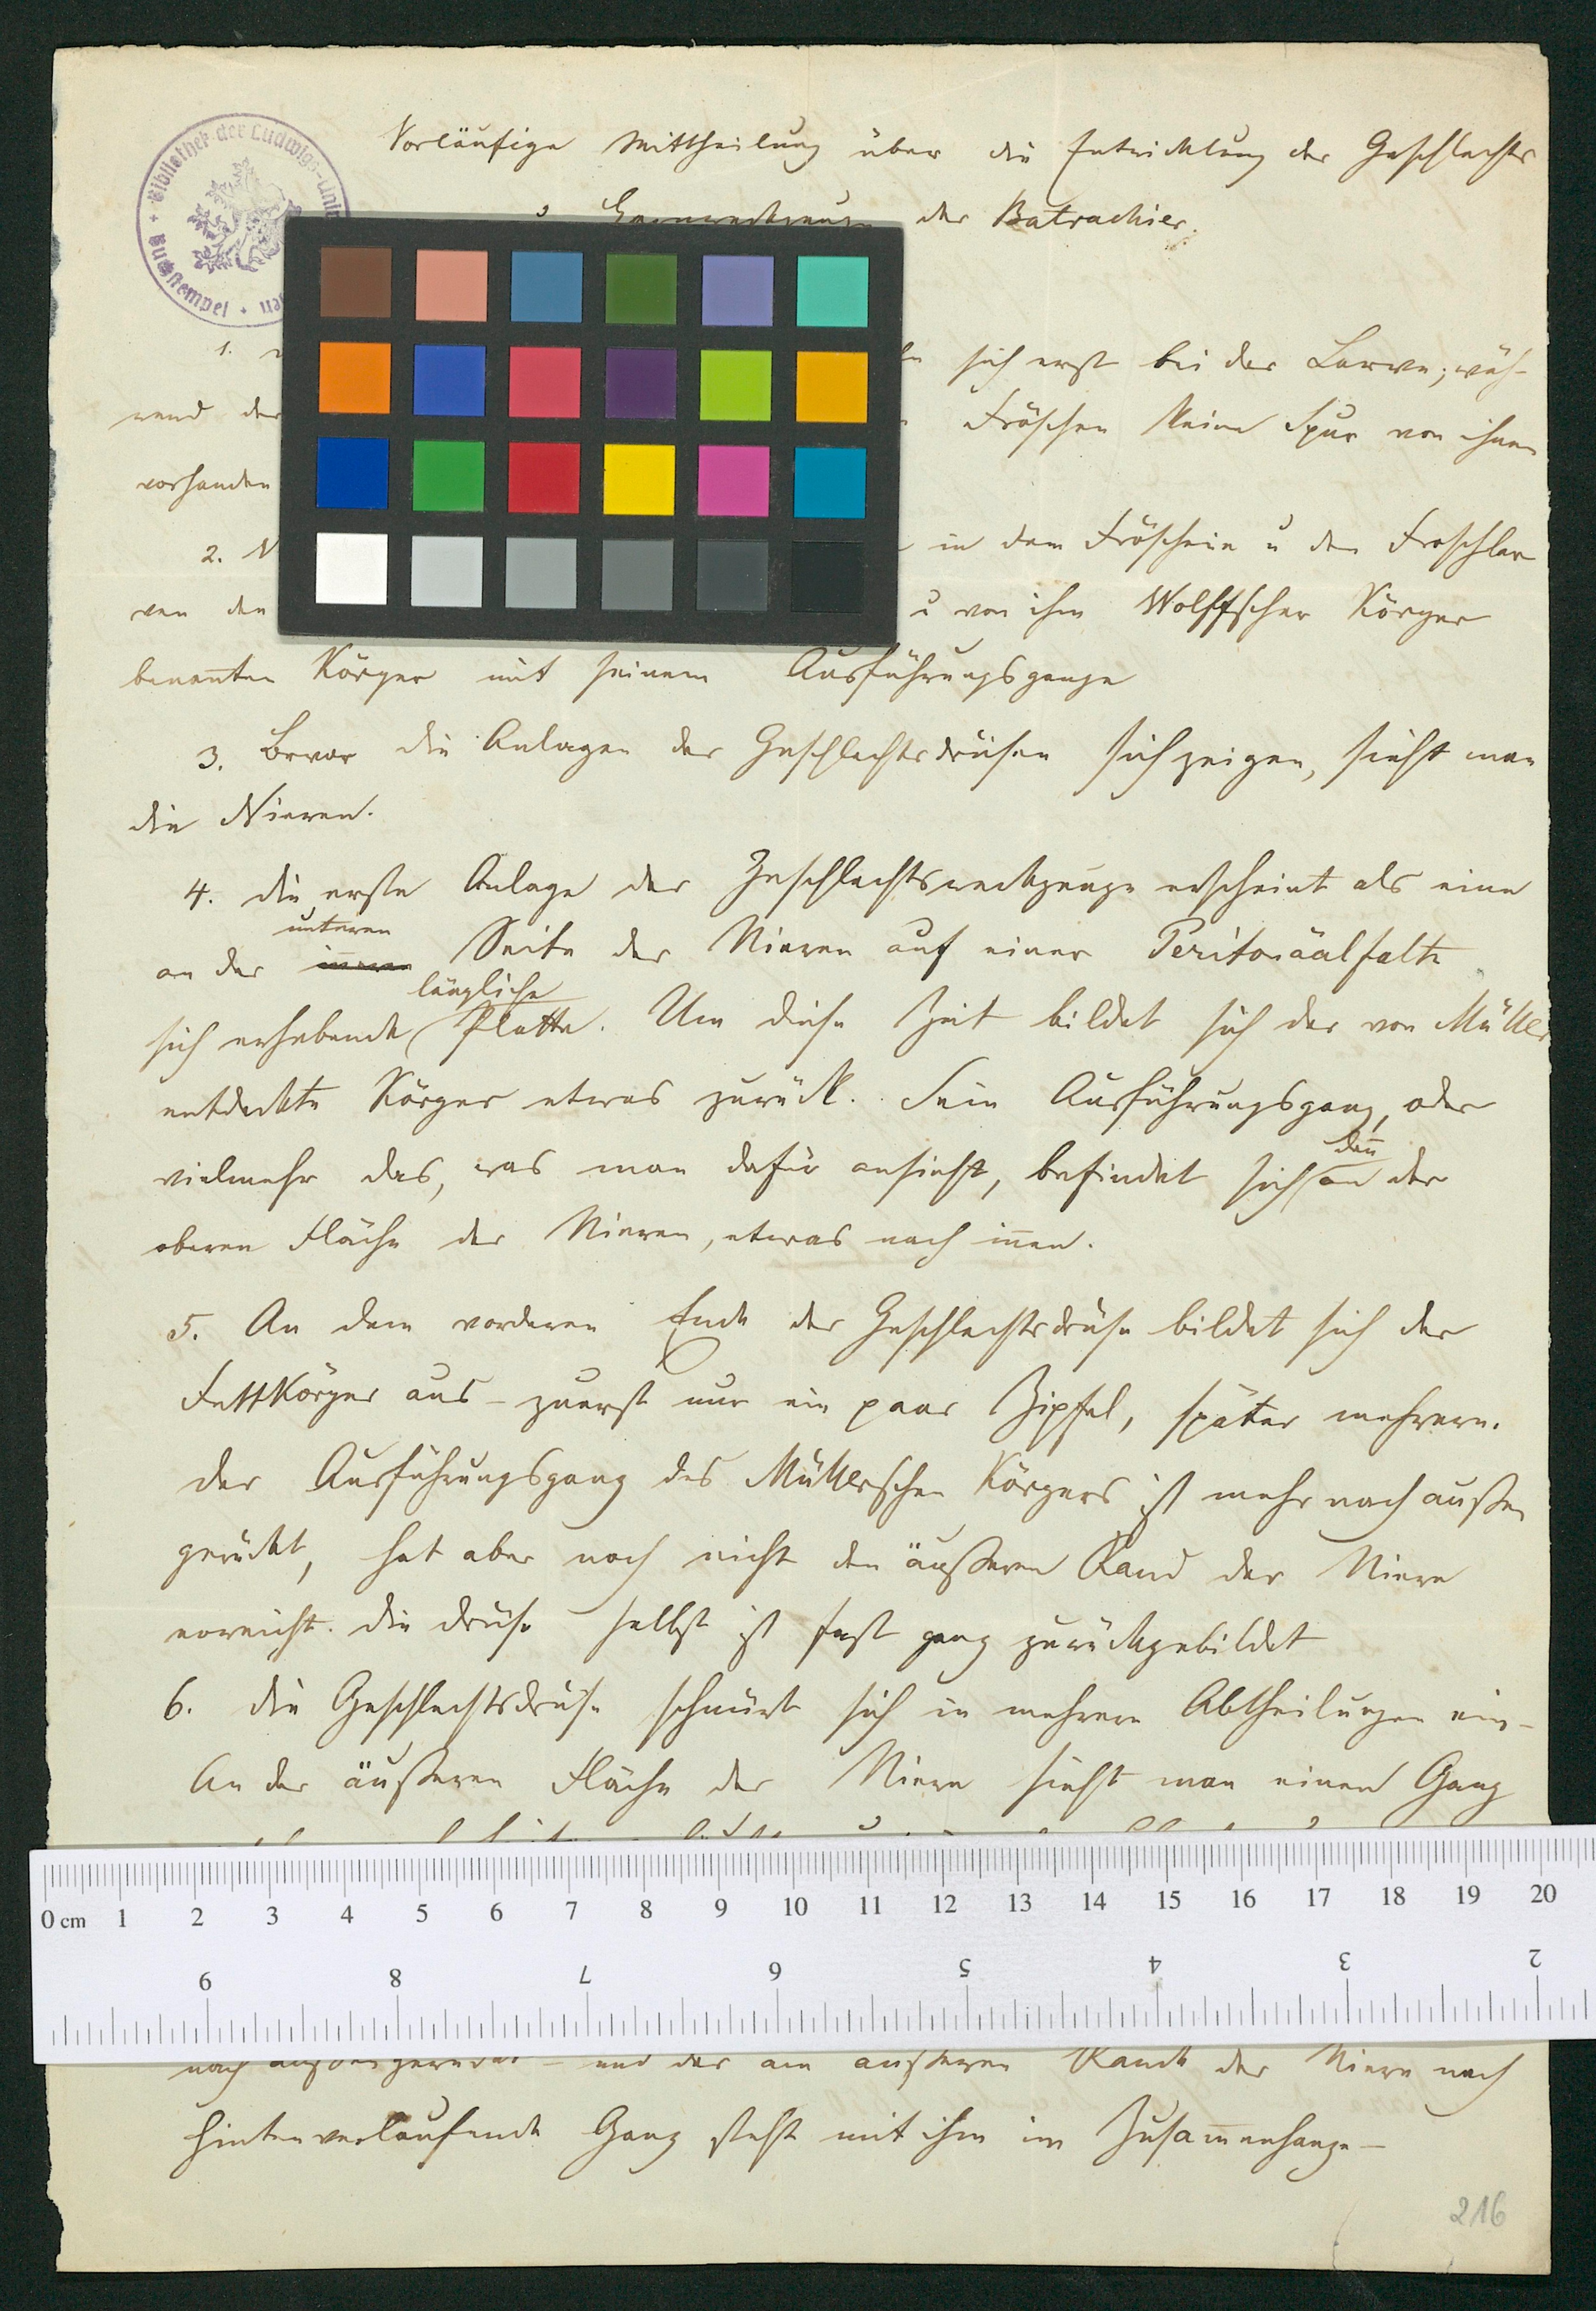 Vorläufige Mittheilung über die Entwicklung der Geschlechts
u Harnwerkzeuge der Batrachier.
Bibliothek der Ludwigs-Uni
Buchstempel
1.
sich erst bei der Larve; wäh-
rend der
Fröschen keine Spur von ihnen
vorhanden
2. N
in dem Fröschein u den Froschlar
ven den
u von ihm Wolffscher Körper
benanten Körper mit seinem Ausführungsgange
3. Bevor die Anlagen der Geschlechtsdrüsen sich zeigen, sieht man
die Nieren.
4. die erste Anlage der Geschlechtswerkzeuge erscheint als eine
unteren
an der inneren Seite der Nieren auf einer Peritonäalfalte
längliche
sich erhebende Platte. Um diese Zeit bildet sich der von Müller
entdeckte Körper etwas zurück. Sein Ausführungsgang, oder
vielmehr das, was man dafür ansieht, befindet sich an der
dañ
oberen Fläche der Nieren, etwas nach iñen.
5. An dem vorderen Ende der Geschlechtsdrüse bildet sich der
Fettkörper aus - zuerst nur ein paar Zipfel, später mehrere.
der Ausführungsgang des Müllerschen Körpers ist mehr nach außen
gerückt, hat aber noch nicht den äußeren Rand der Niere
erreicht. die drüse selbst ist fast ganz zurückgebildet
6. die Geschlechtsdrüse schnürt sich in mehrere Abtheilungen ein-
An der äußeren Fläche der Niere sieht man einen Gang
0 cm 1 2 3 4 5 6 7 8 9 10 11 12 13 14 15 16 17 18 19 20
9 8 7 6 5 4 3 2
nach außen gerückt - und der am äußeren Rande der Niere nach
hinten verlaufende Gang steht mit ihm im Zusam̄enhange-
216